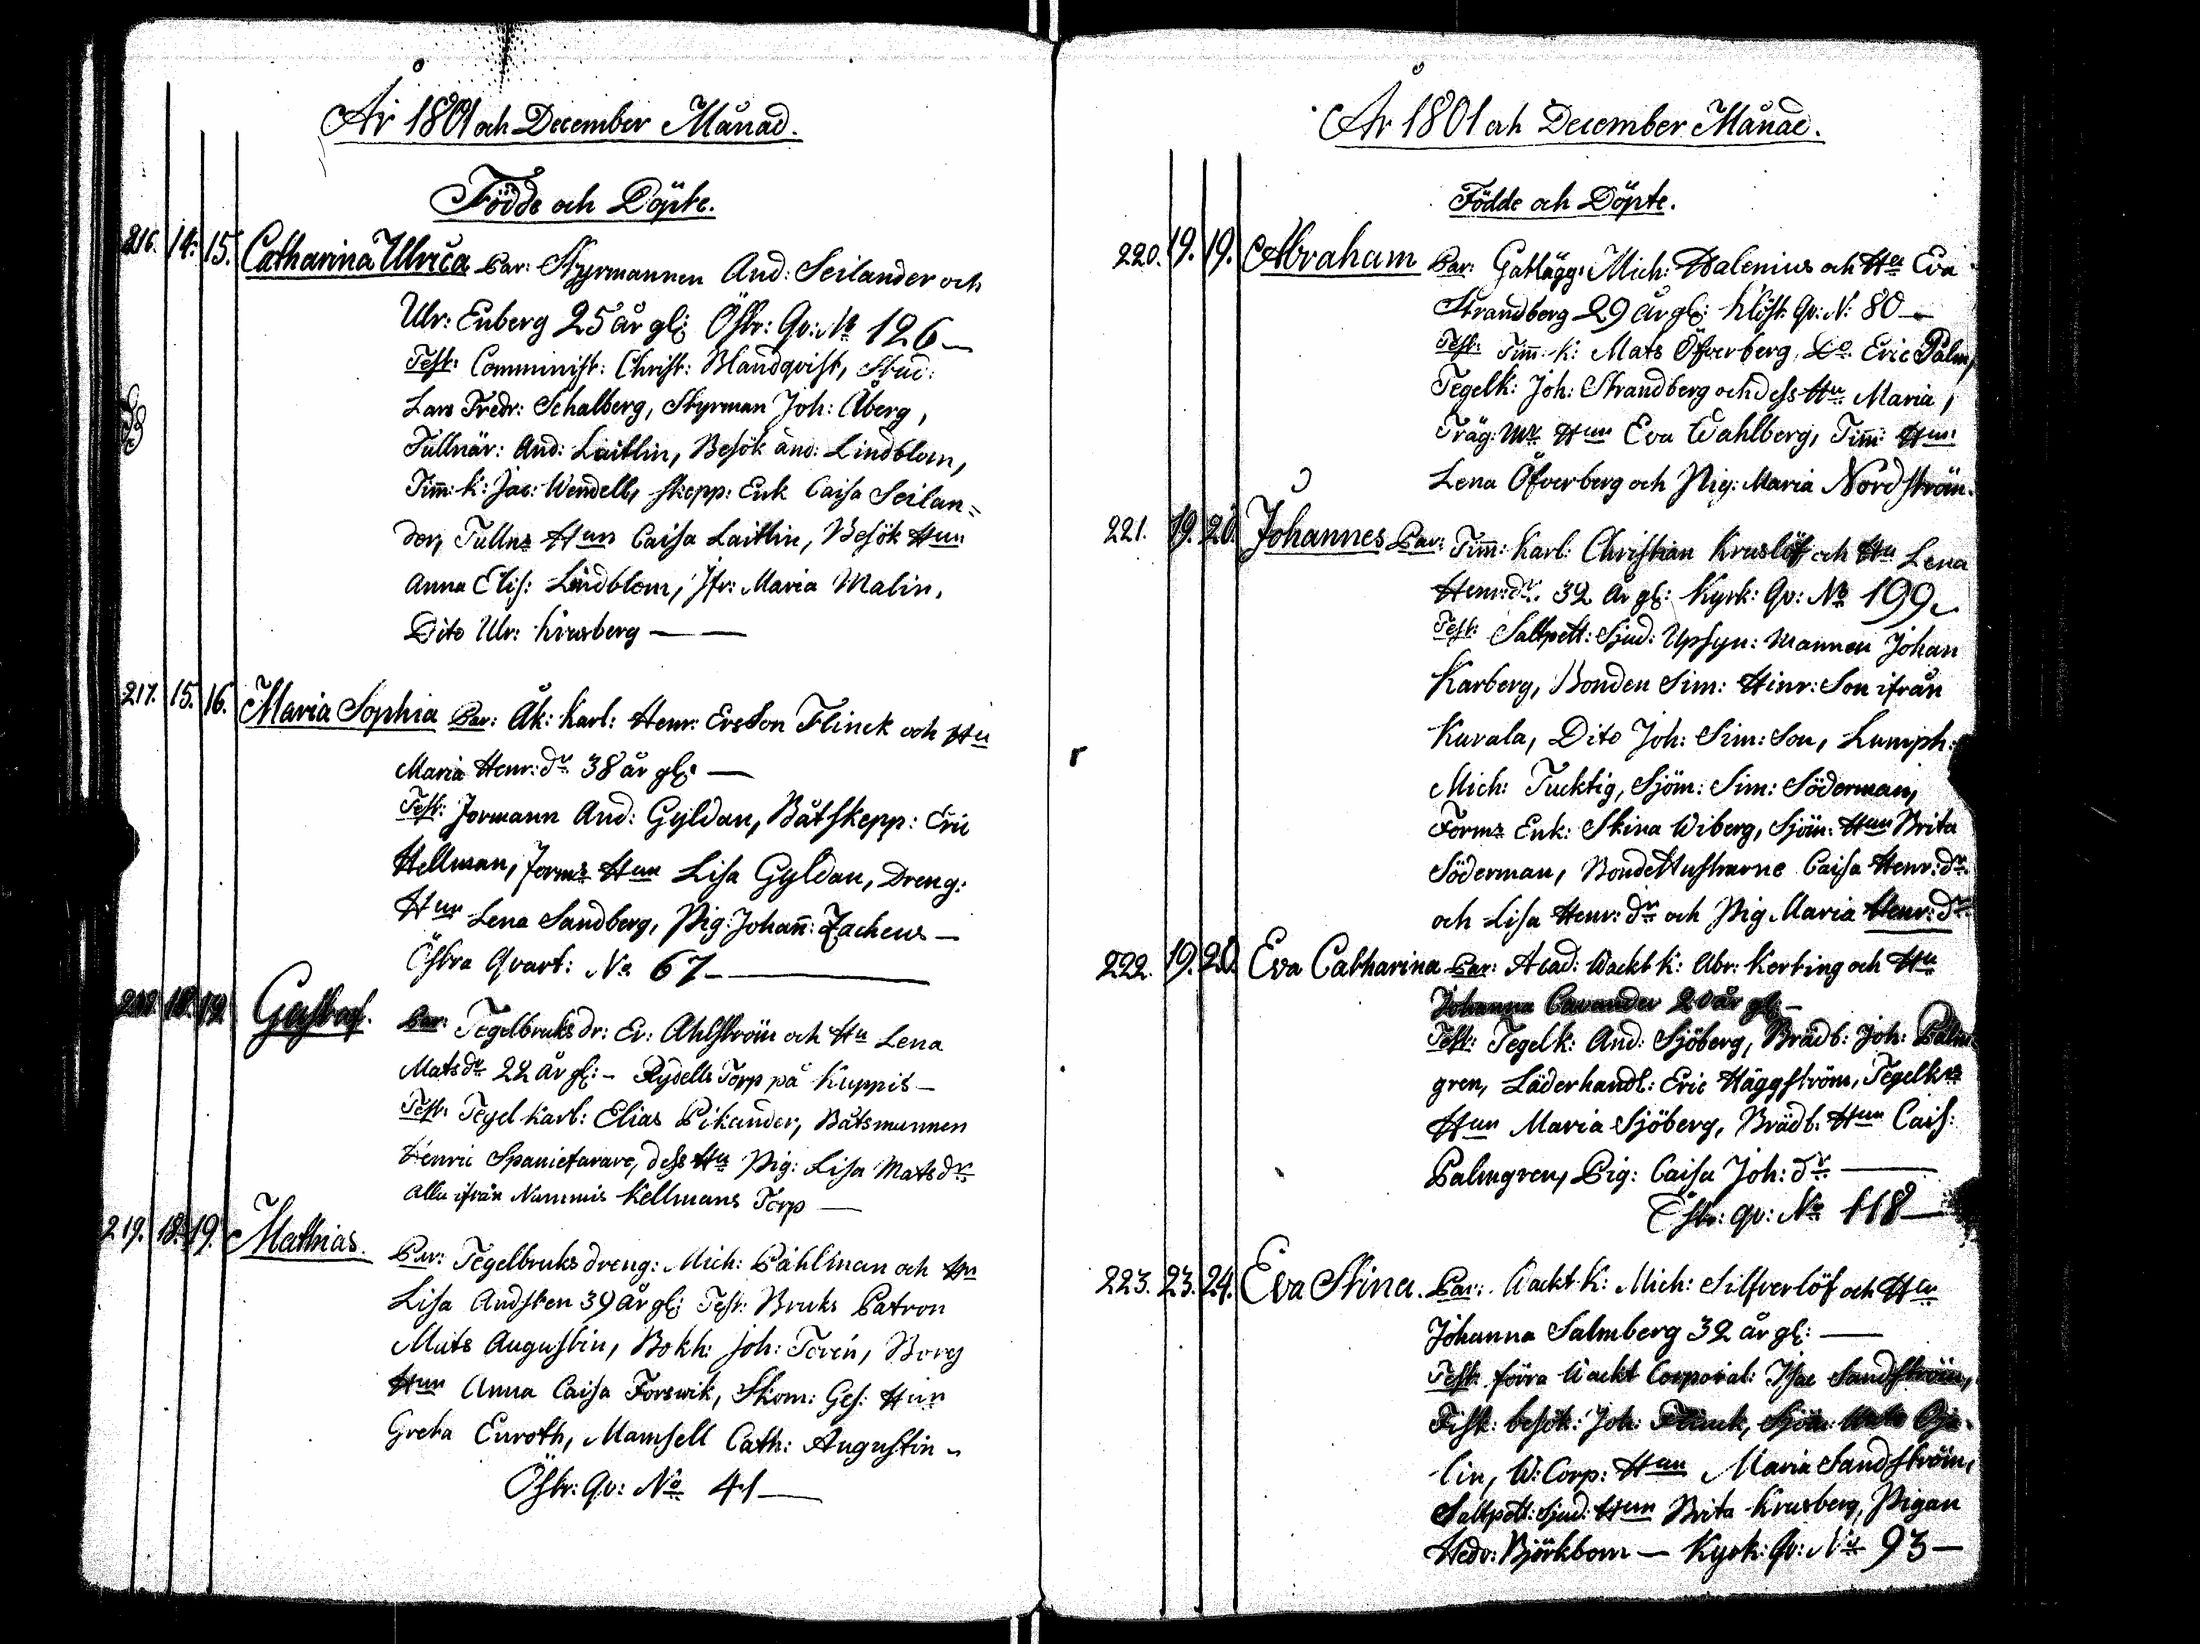 År 1801 och December Månad.
Födde och Döpte.
216. 14. 15. Catharina Ulrica Par: Styrmannen And: Seilander och
Ulr: Enberg 25 år gl: Östr: Qv: No 126 —
Test: Comminist: Christ: Blandqvist, Stud:
Lars Fredr: Schalberg, Styrman Joh: Åberg,
Tullnär: And: Laitlin, Besök And: Lindblom,
Timm: k: Jac: Wendell, Skepp: Enk Caisa Seilan=
der, Tullns Hun Caisa Laitlin, Besök Hun
Anna Elis: Lindblom, Jfr: Maria Malin,
Dito Ulr: Krusberg — —
217. 15. 16. Maria Sophia Par: Åk: Karl: Henr: Ersson Flinck och Hu
Maria Henr: dr 38 år gl: —
Test: Formann And: Gyldan, Båtskepp: Eric
Hellman, Forms Hun Lisa Gyldan, Dreng:
Hun Lena Sandberg, Pig: Johan: Zacheus —
Östra Qvart: No 67 —
218. 18. 19. Gustaf. Par: Tegelbruks dr: Er: Ahlström och Hu Lena
Mats dr 22 år gl: — Rydells Torp på Kuppis —
Test: Tegel karl: Elias Pikander, Båtsmannen
Henric Spanietarare, dess Hu Pig: Lisa Mats dr
alla ifrån Nummis Kellmans Torp —
219. 18. 19. Mathias. Par: Tegelbruks dreng: Mich: Påhlman och Hu
Lisa Andsten 39 år gl: Test: Bruks Patron
Mats Augustin, Bokh: Joh: Torén, Borg
Hun Anna Caisa Forswik, Skom: Ges: Hun
Greta Enroth, Mamsell Cath: Augustin —
Östr: Qv: No 41 —
År 1801 och December Månad.
Födde och Döpte.
220. 19. 19. Abraham Par: Gatlägg: Mich: Dalenius och Hu Eva
Strandberg 29 år gl: Klöst: Qv: N: 80 —
Test: Timm: k: Mats Öfverberg, Do Eric Palm,
Tegelk: Joh: Strandberg och dess Hu Maria,
Träg: Mr Hun Eva Wahlberg, Timm: Hun
Lena Öfverberg och Pig: Maria Nordström.
221. 19. 20. Johannes Par: Timm: Karl: Christian Kruslöf och Hu Lena
Henr: dr. 32 år gl: Kyrk: Qv: No 199
Test: Saltpett: Sjud: Upsyn: Mannen Johan
Karberg, Bonden Sim: Hinr: Son ifrån
Kurala, Dito Joh: Sim: Son, Lumph:
Mich: Tucktig, Sjöm: Sim: Söderman,
Forms Enk: Stina Wiberg, Sjöm: Hun Brita
Söderman, Bonde Hustrurne Caisa Henr: dr
och Lisa Henr: dr och Pig Maria Henr: dr
222. 19. 20. Eva Catharina Par: Acad: Wackt K: Abr: Kerting och Hu
Johanna Cavander 20 år gl: —
Test: Tegelk: And: Sjöberg, Brädb: Joh: Palm
gren, Läderhandl: Eric Häggström, Tegelks
Hun Maria Sjöberg, Brädb: Hun Cais:
Palmgren, Pig: Caisa Joh: dr —
Östr: qv: No 118 —
223. 23. 24. Eva Stina. Par: Wackt K: Mich: Silfverlöf och Hu
Johanna Salmberg 32 år gl: —
Test: förra Wackt Corporal: Isac Sandström,
Fisk: besök: Joh: Flinck, Sjöm:
lin, W: Corp: Hun Maria Sandström,
Saltpett: Sjud: Hun Brita Krusberg, Pigan
Hedv: Björkbom — Kyrk: Qv: No 93 —